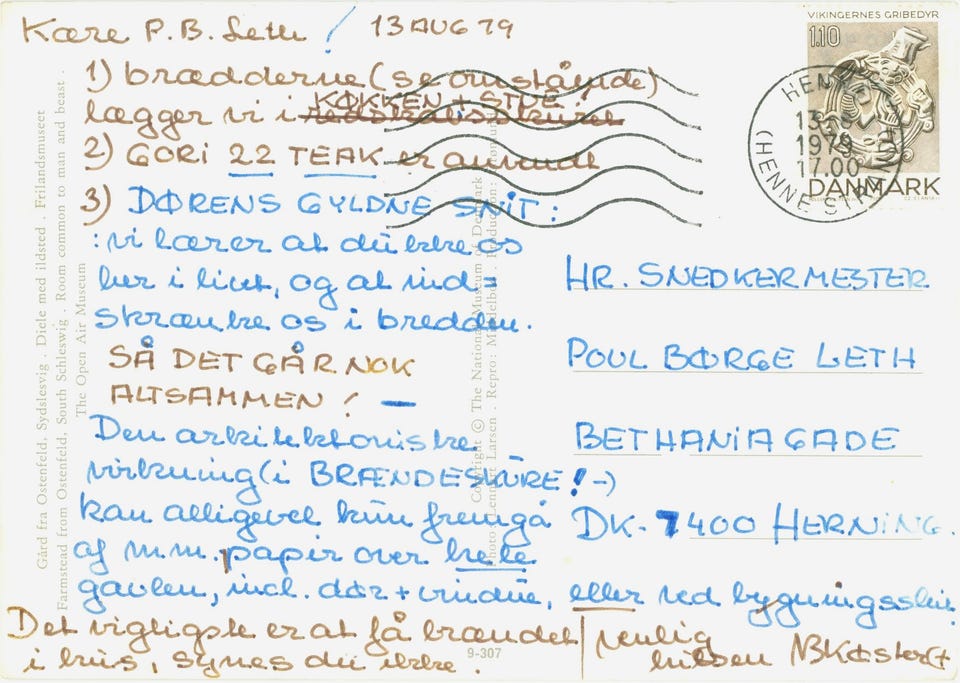 Kære P.B. Leth! 13 AUG 79
1) brædderne (se omstående)
KØKKEN + STUE!
lægger vi i redskabsskuret
2) GORI 22 TEAK er anvendt
3) DØRENS GYLDNE SNIT:
: vi lærer at dukke os
her i livet, og at ind-
skrænke os i bredden.
SÅ DET GÅR NOK
ALTSAMMEN! —
Den arkitektoniske
virkning (i BRÆNDESKURE! -)
kan alligevel kun fremgå
af m.m. papir over hele
gavlen, incl. dør + vindue, eller ved bygningsskik
Det vigtigste er at få brændet
i hus, synes du ikke.
venlig
hilsen
HR. SNEDKERMESTER
POUL BØRGE LETH
BETHANIAGADE
DK-7400 HERNING.
VIKINGERNES GRIBEDYR
1.10
DANMARK
HENNE STRAND
13.8.
1979
17.00
(HENNE STRAND)
Gård fra Ostenfeld, Sydslesvig. Diele med ildsted. Frilandsmuseet
Farmstead from Ostenfeld, South Schleswig. Room common to man and beast.
The Open Air Museum
Copyright © The National Museum of Denmark
Photo: Lennart Larsen. Repro: Production:
9-307